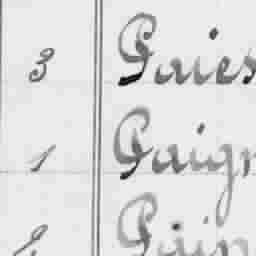 3 Gaies
1 Gaign
2 Gain